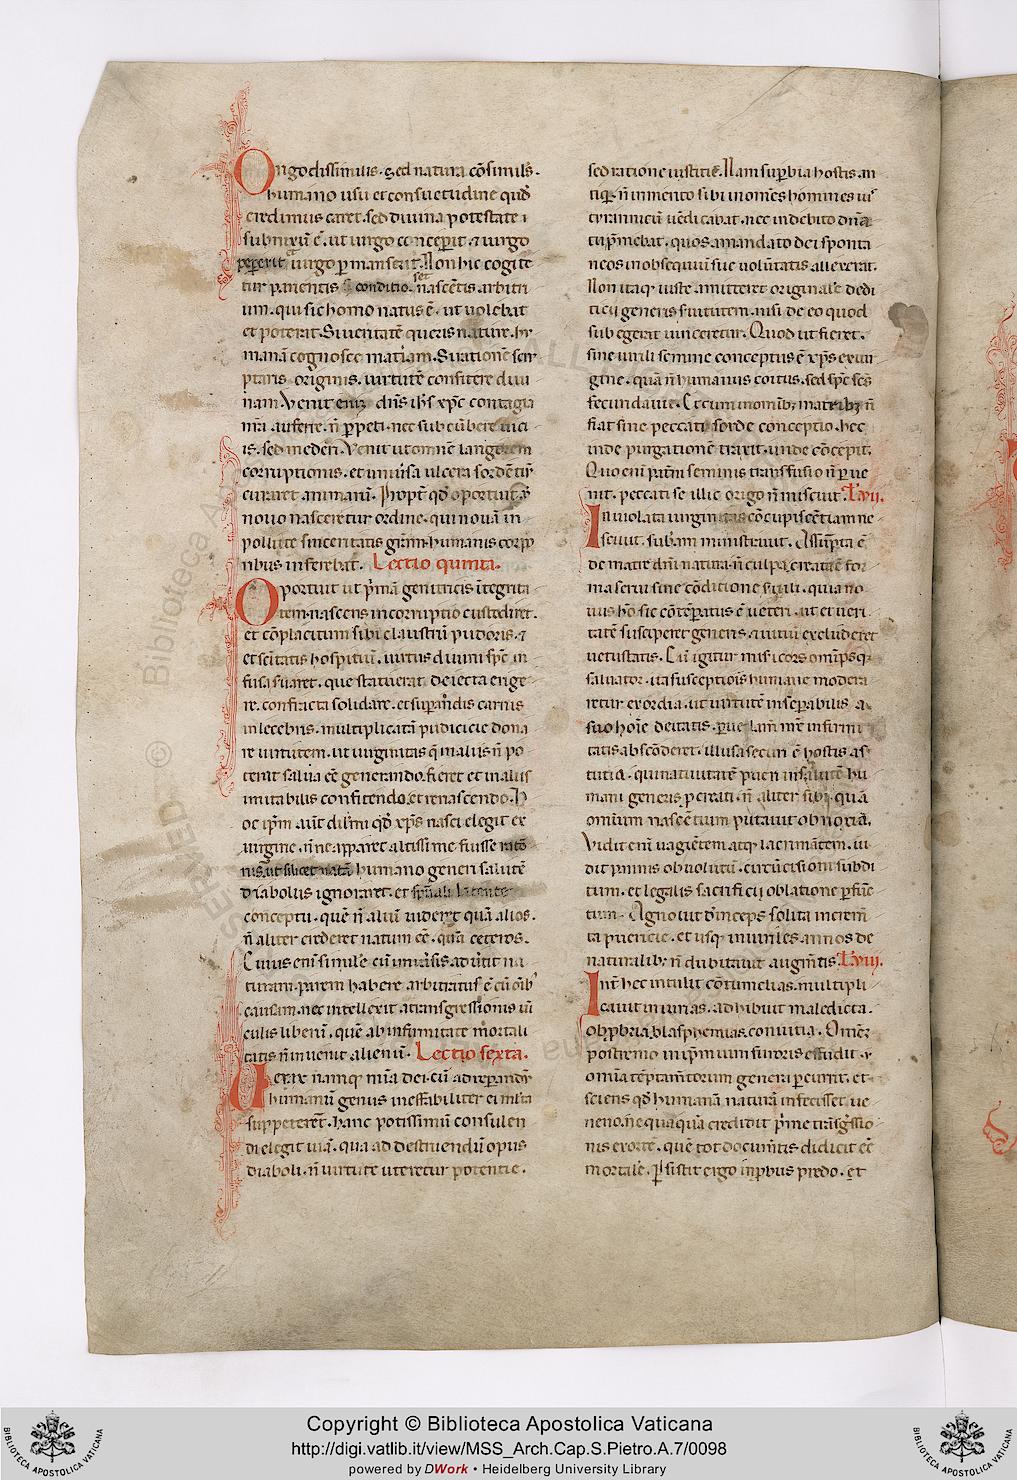 Origo dissimilis. sed natura cōsimilis.
humano usu et consuetudine qd̄
credimus caret. sed divina potestate
subnixū ē. ut virgo conceperit. ⁊ virgo
pepererit ⁊ virgo p̄manserit. Non hic cogite
tur parientis conditio. set nascētis arbitri
um. qui sic homo natus ē. ut volebat
et poterat. Si veritatē queris nature. hu
manā cognosce matiam. Si rationē scru
ptaris originis. virtutē confitere divi
nam. Venit eniz dn̄s ih̄s xp̄c contagia
nr̄a auferre. n̄ p̄peti. nec sub cūbere vici
is. sed mederi. Venit ut omnē languorem
corruptionis. et universa ulcera sordētiū
curaret animarū. Propt̄ qd̄ oportuit ut
novo nasceretur ordine. qui novā in
pollute sinceritatis gr̄am humanis corpo
ribus inferebat. Lectio quinta.
Oportuit ut p̄mā genitricis ītegrita
tem nascens incorruptio custodiret.
et cōplacitum sibi claustrū pudoris. ⁊
et scītatis hospitiū. virtus divini sp̄c in
fusa servaret. que statuerat deiecta erige
re. confracta solidare. et superādis carnis
inlecebris. multiplicatā pudicicie dona
re virtutem. ut virginitas q̄ in aliis n̄ po
terat salva eē generando. fieret et in aliis
imitabilis confitendo. et renascendo. H
oc ip̄m aut̄ dil̄mi qd̄ xp̄s nasci elegit ex
virgine. n̄ne apparet altissime fuisse ratō
nis. ut scilicet natā humano generi salutē
diabolus ignoraret. et spūali latente
conceptu. quē n̄ aliū videret quā alios.
n̄ aliter crederet natum eē. quā ceteros.
Cuius eni simile cū univ̄sis advertit na
turam. parem habere arbitratus ē cū oīb
causam. nec intellexit a transgressionis vī
culis liberū. quē ab infirmitate mortali
tatis n̄ invenit alienū. Lectio sexta.
Verax namq̄ mīa dei. cū ad reparandū
humanū genus ineffabiliter ei multa
suppeterēt. hanc potissimū consulen
di elegit viā. qua ad destruendū opus
diaboli. n̄ virtute uteretur potentie.
sed ratione iustitie. Nam superbia hostis an
tiq̄. n̄ inmerito sibi in omēs homines ius
tyrannicū vēdicabat. nec indebito dn̄a
tu p̄mebat. quos a mandato dei sponta
neos in obsequiū sue volūtatis allexerat.
Non itaq̄ iuste amitteret originalē dedi
ticii generis s̄vitutem. nisi de eo quod
sub egerat vinceretur. Quod ut fieret.
sine virili semine conceptus ē xp̄s ex vir
gine. quā n̄ humanus coitus. sed sp̄c scs̄
fecundavit. Et cum in omībz matribz n̄
fiat sine peccati sorde conceptio. hec
inde purgationē traxit. unde cōcepit.
Quo eni patn̄ seminis transfusio n̄ p̄ve
nit. peccati se illic origo n̄ miscuit. L. vii.
Inviolata virginitas cōcupiscētiam ne
scivit. sub am ministravit. Assūpta ē
de matre dn̄i natura. n̄ culpa. creata ē for
ma servi sine cōditione servili. quia no
vus hō sic cōtēperatus ē veteri. ut et veri
tatē susciperet generis. ⁊ vitiū excluderet
vetustatis. Cū igitur misericors omīpsq̄
salvator. ita susceptiois humane modera
retur exordia. ut virtutē inseparabilis a
suo hoīe deitatis. per velamē nr̄e infirmi
tatis abscōderet. illusa securi ē hostis as
tutia. qui nativitatē pueri in salutē hu
mani generis p̄creati. n̄ aliter sibi. quā
omnium nascētium putavit obnoxiā.
Vidit eni vagiētem atq̄ lacrimātem. vi
dit pannis obvolutū. circūcisioni subdi
tum. et legalis sacrificij oblatione perfūc
tum. Agnovit deinceps solita increm̄
ta puericie. et usq̄ in viriles annos de
naturalibz n̄ dubitavit augm̄tis. L. viii.
Int̄ hec intulit cōtumelias. multipli
cavit iniurias. adhibuit maledicta.
obp̄bria. blasphemias. convitia. Omēz
postremo in ip̄m vim furoris effudit. ⁊
omīa tēptam̄torum genera percurrit. et
sciens qd̄ humanā naturā infecisset ve
neno. nequaquā credidit prime trāsḡssio
nis exortē. quē tot documētis didicit eē
mortalē. Perstitit ergo inprobus predo. et
Copyright © Biblioteca Apostolica Vaticana
http://digi.vatlib.it/view/MSS_Arch.Cap.S.Pietro.A.7/0098
powered by DWork • Heidelberg University Library